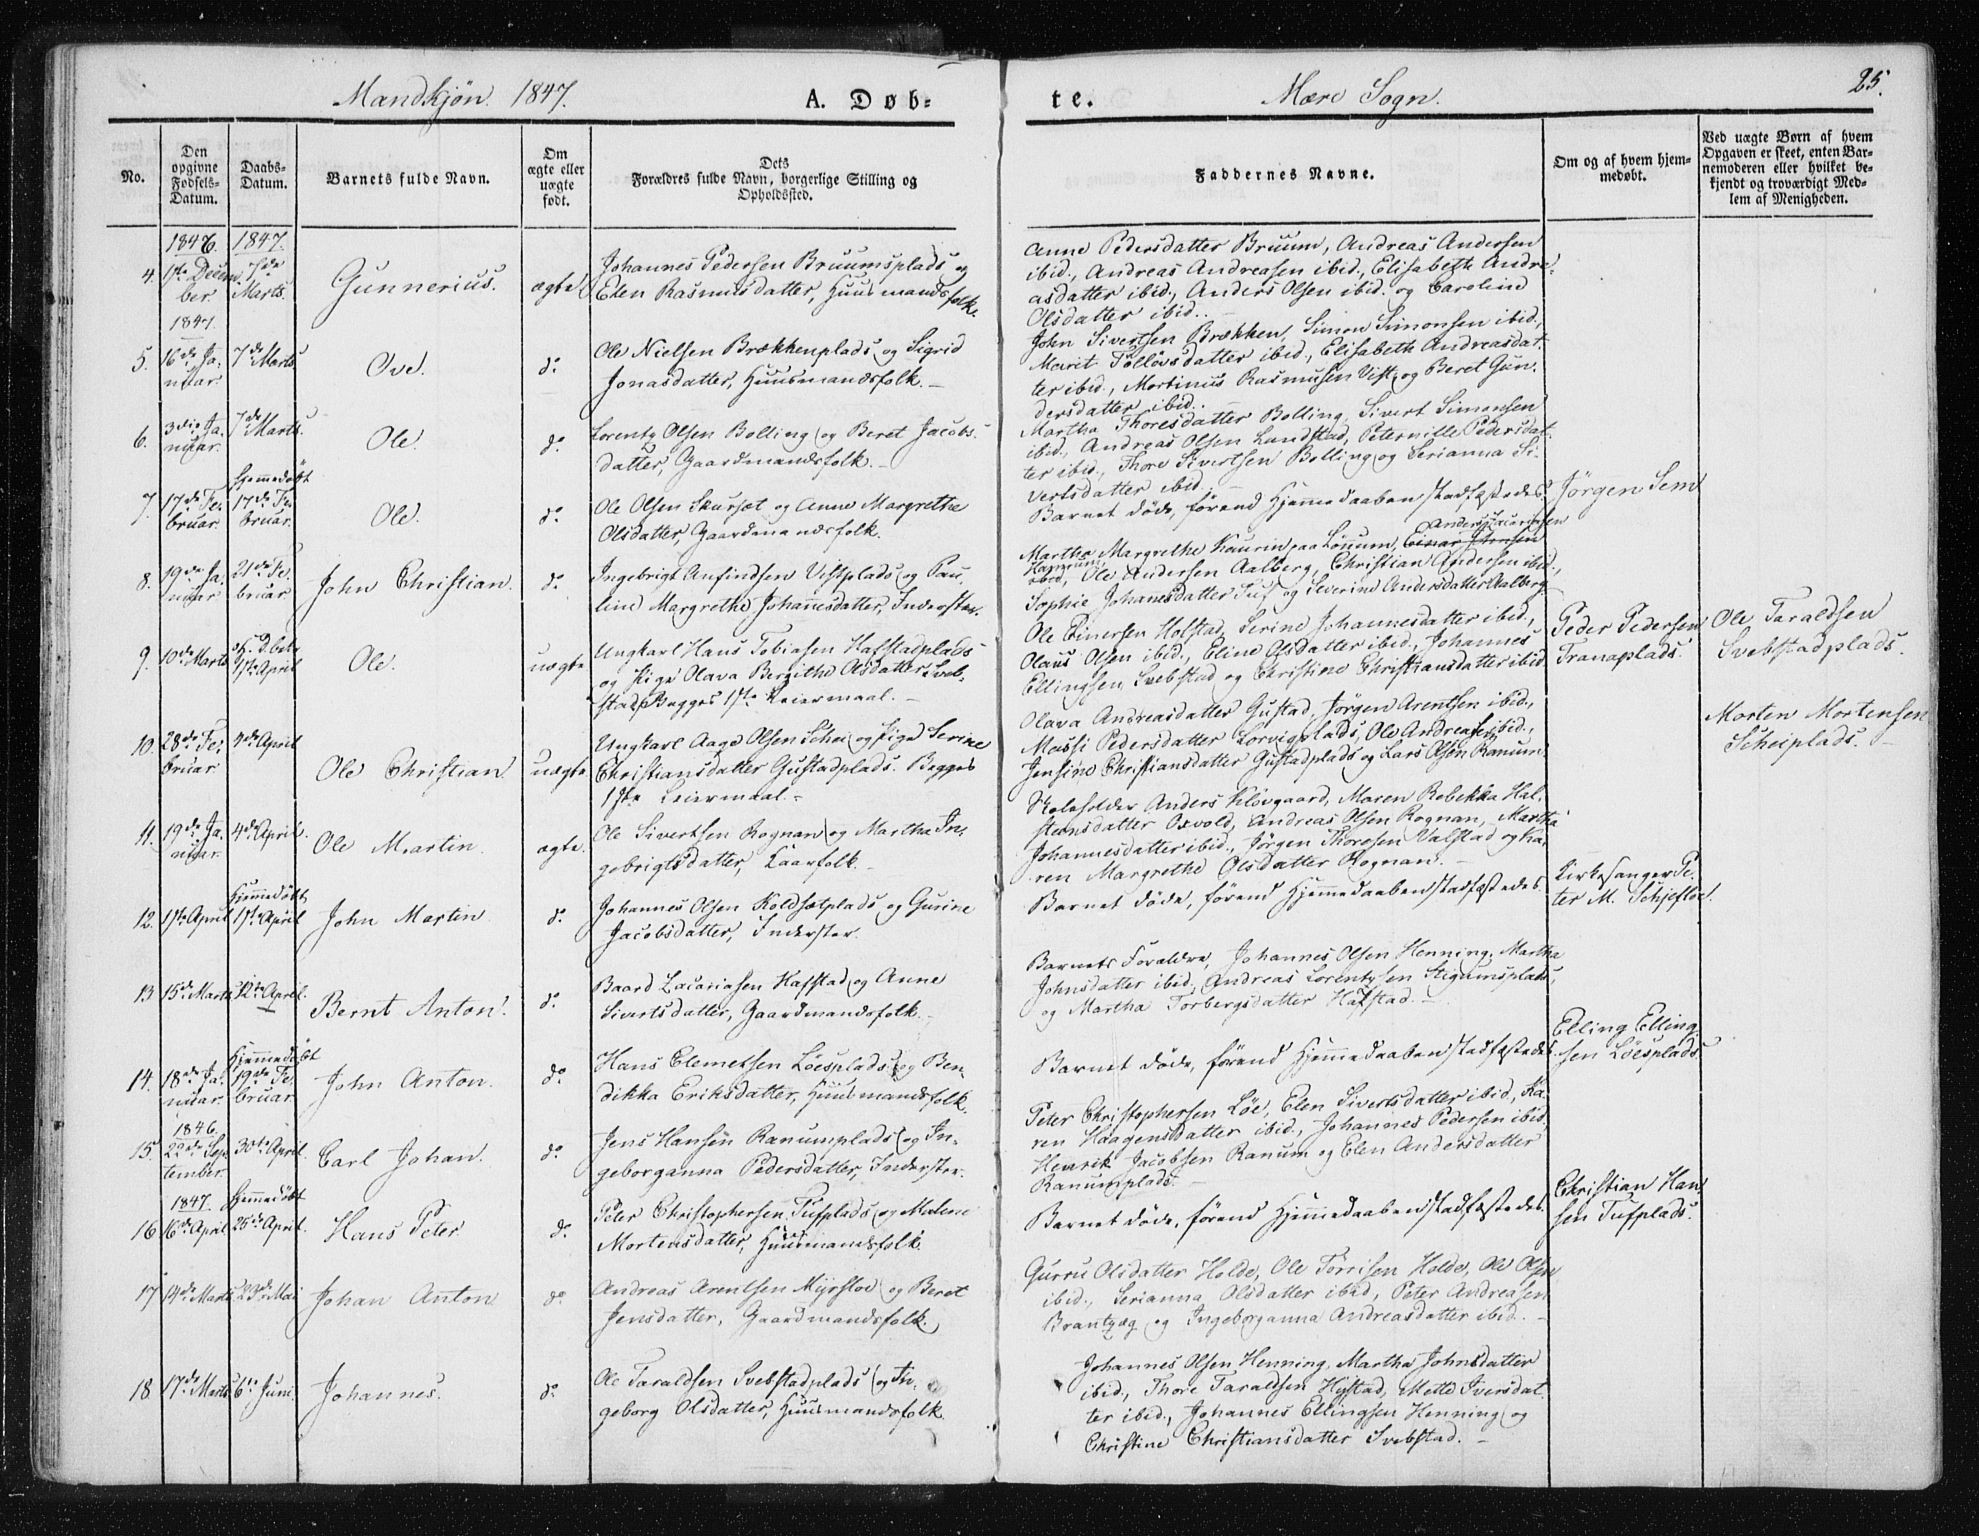 Mandkjøn. 1847.
A. Døb-
te.
Mære Sogn.
25.
No.
Den
opgivne
Fødsels-
Datum.
Daabs-
Datum.
Barnets fulde Navn.
Om
ægte eller
uægte
født.
Dets
Forældres fulde Navn, borgerlige Stilling og
Opholdssted.
Faddernes Navne.
Om og af hvem hjem-
medøbt.
Ved uægte Børn af hvem
Opgaven er skeet, enten Bar-
nemoderen eller hvilket be-
kjendt og troværdigt Med-
lem af Menigheden.
1846. 1847.
4. 1ste Decem-
ber. 7de
Marts. Gunnerius. ægte
Johannes Pedersen Bruumsplads og
Elen Rasmusdatter, Huusmandsfolk.
Anne Pedersdatter Bruum, Andreas Andersen
ibid., Andreas Andreasen ibid., Elisabeth Andre-
asdatter ibid., Anders Olsen ibid. og Caroline
Olsdatter ibid.
1847.
5. 16de Ja-
nuar. 7de Marts Ove. do
Ole Nielsen Brækkenplads og Sigrid
Jonasdatter, Huusmandsfolk.
John Sivertsen Brækken, Simon Simonsen ibid.,
Marit Tollovsdatter ibid., Elisabeth Andreasdat-
ter ibid., Martinus Rasmusen Vist, og Beret Gun-
dersdatter ibid.
6. 3die Ja-
nuar. 7de Marts. Ole. do
Lorentz Olsen Bolling og Beret Jacobs-
datter, Gaardmandsfolk.
Martha Thoresdatter Bolling, Sivert Simonsen
ibid., Andreas Olsen Lundstad, Peternille Pedersdat-
ter ibid., Thore Sivertsen Bolling og Serianna Si-
vertsdatter ibid.
7. 17de Fe-
bruar. Hjemmedøbt
17de Fe-
bruar. Ole. do
Ole Olsen Skursæt og Anne Margrethe
Olsdatter, Gaardmandsfolk.
Barnet døde, førend Hjemmedaaben stadfæstedes.
Jørgen Sem
8. 19de Ja-
nuar 21de Fe-
bruar John Christian. do
Ingebrigt Anfindsen Vistplads og Pau-
line Margrethe Johannesdatter, Inderster.
Martha Margrethe Kaurin paa Lønnum,
ibid., Ole Andersen Aalberg, Christian Andersen ibid.,
Sophie Johannesdatter Tuf og Severine Andersdatter Aalberg.
9. 10de Marts
1ste April Ole. uægte
Ungkarl Hans Tobiasen Hafstadplads
og Pige Olava Bergithe Olsdatter Sveb-
stad. Begges 1ste Leiermaal.
Ole Einersen Holstad, Serine Johannesdatter ibid.,
Olaus Olsen ibid., Eline Olsdatter ibid., Johannes
Ellingsen Svebstad og Christine Christiansdatter ibid.
Peder Pedersen
Tranaplads.
Ole Taraldsen
Svebstadplads.
10. 28de Fe-
bruar 4de April Ole Christian. uægte
Ungkarl Aage Olsen Schei og Pige Serine
Christiansdatter Gustadplads. Begges
1ste Leiermaal.
Olava Andreasdatter Gustad, Jørgen Arentsen ibid.,
Massi Pedersdatter Lorvigplads, Ole Andreasen ibid.,
Jensine Christiansdatter Gustadplads og Lars Olsen Ranum.
Morten Mortensen
Scheiplads.
11. 19de Ja-
nuar 4de April. Ole Martin. ægte.
Ole Sivertsen Rognan og Martha In-
gebrigtsdatter, Kaarfolk.
Skoleholder Anders Kløvgaard, Maren Rebekka Hal-
steensdatter Oxvold, Andreas Olsen Rognan, Martha
Johannesdatter ibid., Jørgen Thoresen Valstad og Ka-
ren Margrethe Olsdatter Rognan.
12. 1ste April Hjemmedøbt
1ste April John Martin. do
Johannes Olsen Koldsætplads og Gurine
Jacobsdatter, Inderster.
Barnet døde, førend Hjemmedaaben stadfæstedes.
Kirkesanger Pe-
ter M. Schjefloe.
13 15de Marts 12te April. Bernt Anton. do
Baard Zacariasen Hafstad og Anne
Sivertsdatter, Gaardmandsfolk.
Barnets Forældre, Johannes Olsen Henning, Martha
Johnsdatter ibid., Andreas Lorentzsen Stigumsplads,
og Martha Torbergsdatter Hafstad.
14. 18de Ja-
nuar. Hjemmedøbt
19de Fe-
bruar. John Anton. do
Hans Clemetsen Løesplads og Ben-
dikka Eriksdatter, Huusmandsfolk.
Barnet døde, førend Hjemmedaaben stadfæstedes.
Elling Elling-
sen Løesplads.
1846.
15. 22de Sep-
tember. 30te April. Carl Johan. do
Jens Hansen Ranumplads og In-
geborganna Pedersdatter, Inderster.
Peter Christophersen Løe, Elen Sivertsdatter ibid., Ka-
ren Haagensdatter ibid., Johannes Pedersen ibid.
Henrik Jacobsen Ranum og Elen Andersdatter
Ranumplads.
1847. Hjemmedøbt
16 16de April 25de April. Hans Peter. do
Peter Christophersen Tufplads og Malene
Mortensdatter, Huusmandsfolk.
Barnet døde, førend Hjemmedaaben stadfæstedes.
Christian Han-
sen Tufplads.
17 14de Marts 23de Mai Johan Anton do
Andreas Arentsen Myrstoe og Beret
Jensdatter, Gaardmandsfolk.
Gurru Olsdatter Holde, Ole Torrisen Holde, Ole Olsen
ibid., Serianna Olsdatter ibid., Peter Andreasen
Brantzæg og Ingeborganna Andreasdatter ibid.
18 17de Marts 6te Juni. Johannes. do
Ole Taraldsen Svebstadplads og In-
geborg Olsdatter, Huusmandsfolk.
Johannes Olsen Henning, Martha Johnsdatter
ibid., Thore Taraldsen Hystad, Mette Iversdat-
ter ibid., Johannes Ellingsen Henning og
Christine Christiansdatter Svebstad.